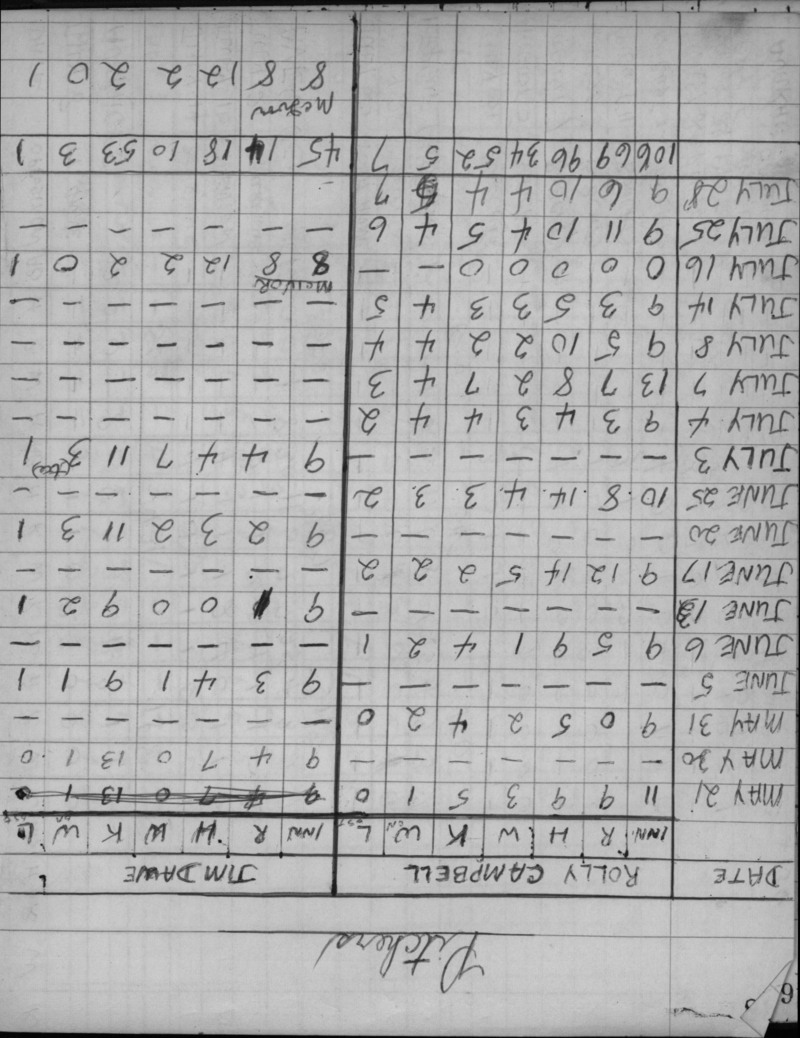 9
Pitchers
DATE ROLLY CAMPBELL JIM DAWE
INN. R H W K WON LOST INN R H W K W L
MAY 21 11 9 9 3 5 1 0 9 4 7 0 13 1 0
MAY 30 — — — — — — — 9 4 7 0 13 1 0
MAY 31 9 0 5 2 4 2 0 — — — — — — —
JUNE 5 — — — — — — — 9 3 4 1 9 1 1
JUNE 6 9 5 9 1 4 2 1 — — — — — — —
JUNE 13 — — — — — — — 9 1 0 0 9 2 1
JUNE 17 9 12 14 5 2 2 2 — — — — — — —
JUNE 20 — — — — — — — 9 2 3 2 11 3 1
JUNE 25 10 8 14 4 3 3 2 — — — — — — —
JULY 3 — — — — — — — 9 4 4 7 11 3 (tie) 1
JULY 4 9 3 4 3 4 4 2 — — — — — — —
JULY 7 13 7 8 2 7 4 3 — — — — — — —
JULY 8 9 5 10 2 2 4 4 — — — — — — —
JULY 14 9 3 5 3 3 4 5 — — — — — — —
McIVOR
JULY 16 0 0 0 0 0 — — 8 8 12 2 2 0 1
JULY 25 9 11 10 4 5 4 6 — — — — — — —
JULY 28 9 6 10 4 4 5 7 —
106 69 96 34 52 5 7 45 14 18 10 53 3 1
McIvor
8 8 12 2 2 0 1